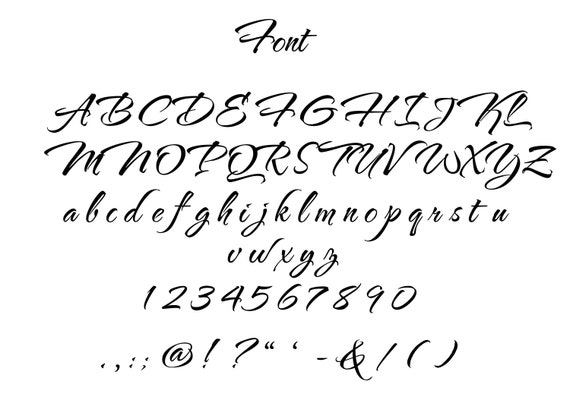 Font
ABCDEFGHIJKL
MNOPQRSTUVWXYZ
abcdefghijklmnopqrstu
vwxyz
1234567890
.,:;@!?“‘-&/()